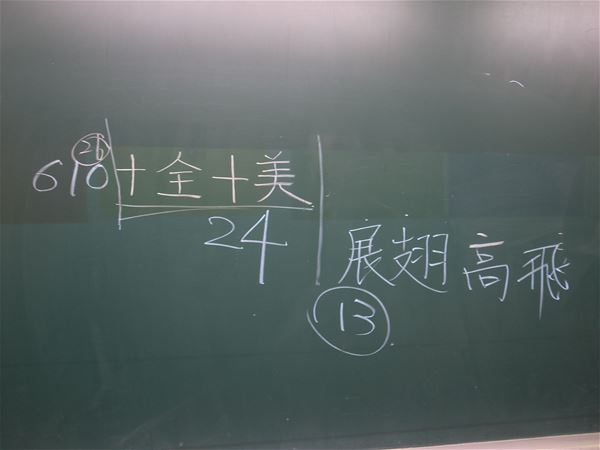 610 26 十全十美
24
展翅高飛
13